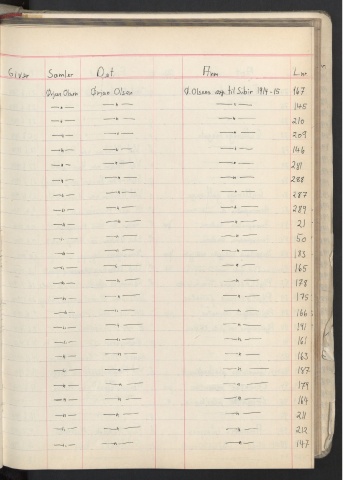 Giver Samler Det Anm Lnr
Ørjan Olsen Ørjan Olsen Ø. Olsens eksp. til Sibir 1914-15 167
—"— —"— —"— 145
—"— —"— —"— 210
—"— —"— —"— 209
—"— —"— —"— 146
—"— —"— —"— 281
—"— —"— —"— 288
—"— —"— —"— 287
—"— —"— —"— 289
—"— —"— —"— 21
—"— —"— —"— 50
—"— —"— —"— 185
—"— —"— —"— 165
—"— —"— —"— 178
—"— —"— —"— 175
—"— —"— —"— 166
—"— —"— —"— 191
—"— —"— —"— 161
—"— —"— —"— 163
—"— —"— —"— 187
—"— —"— —"— 179
—"— —"— —"— 164
—"— —"— —"— 211
—"— —"— —"— 212
—"— —"— —"— 147